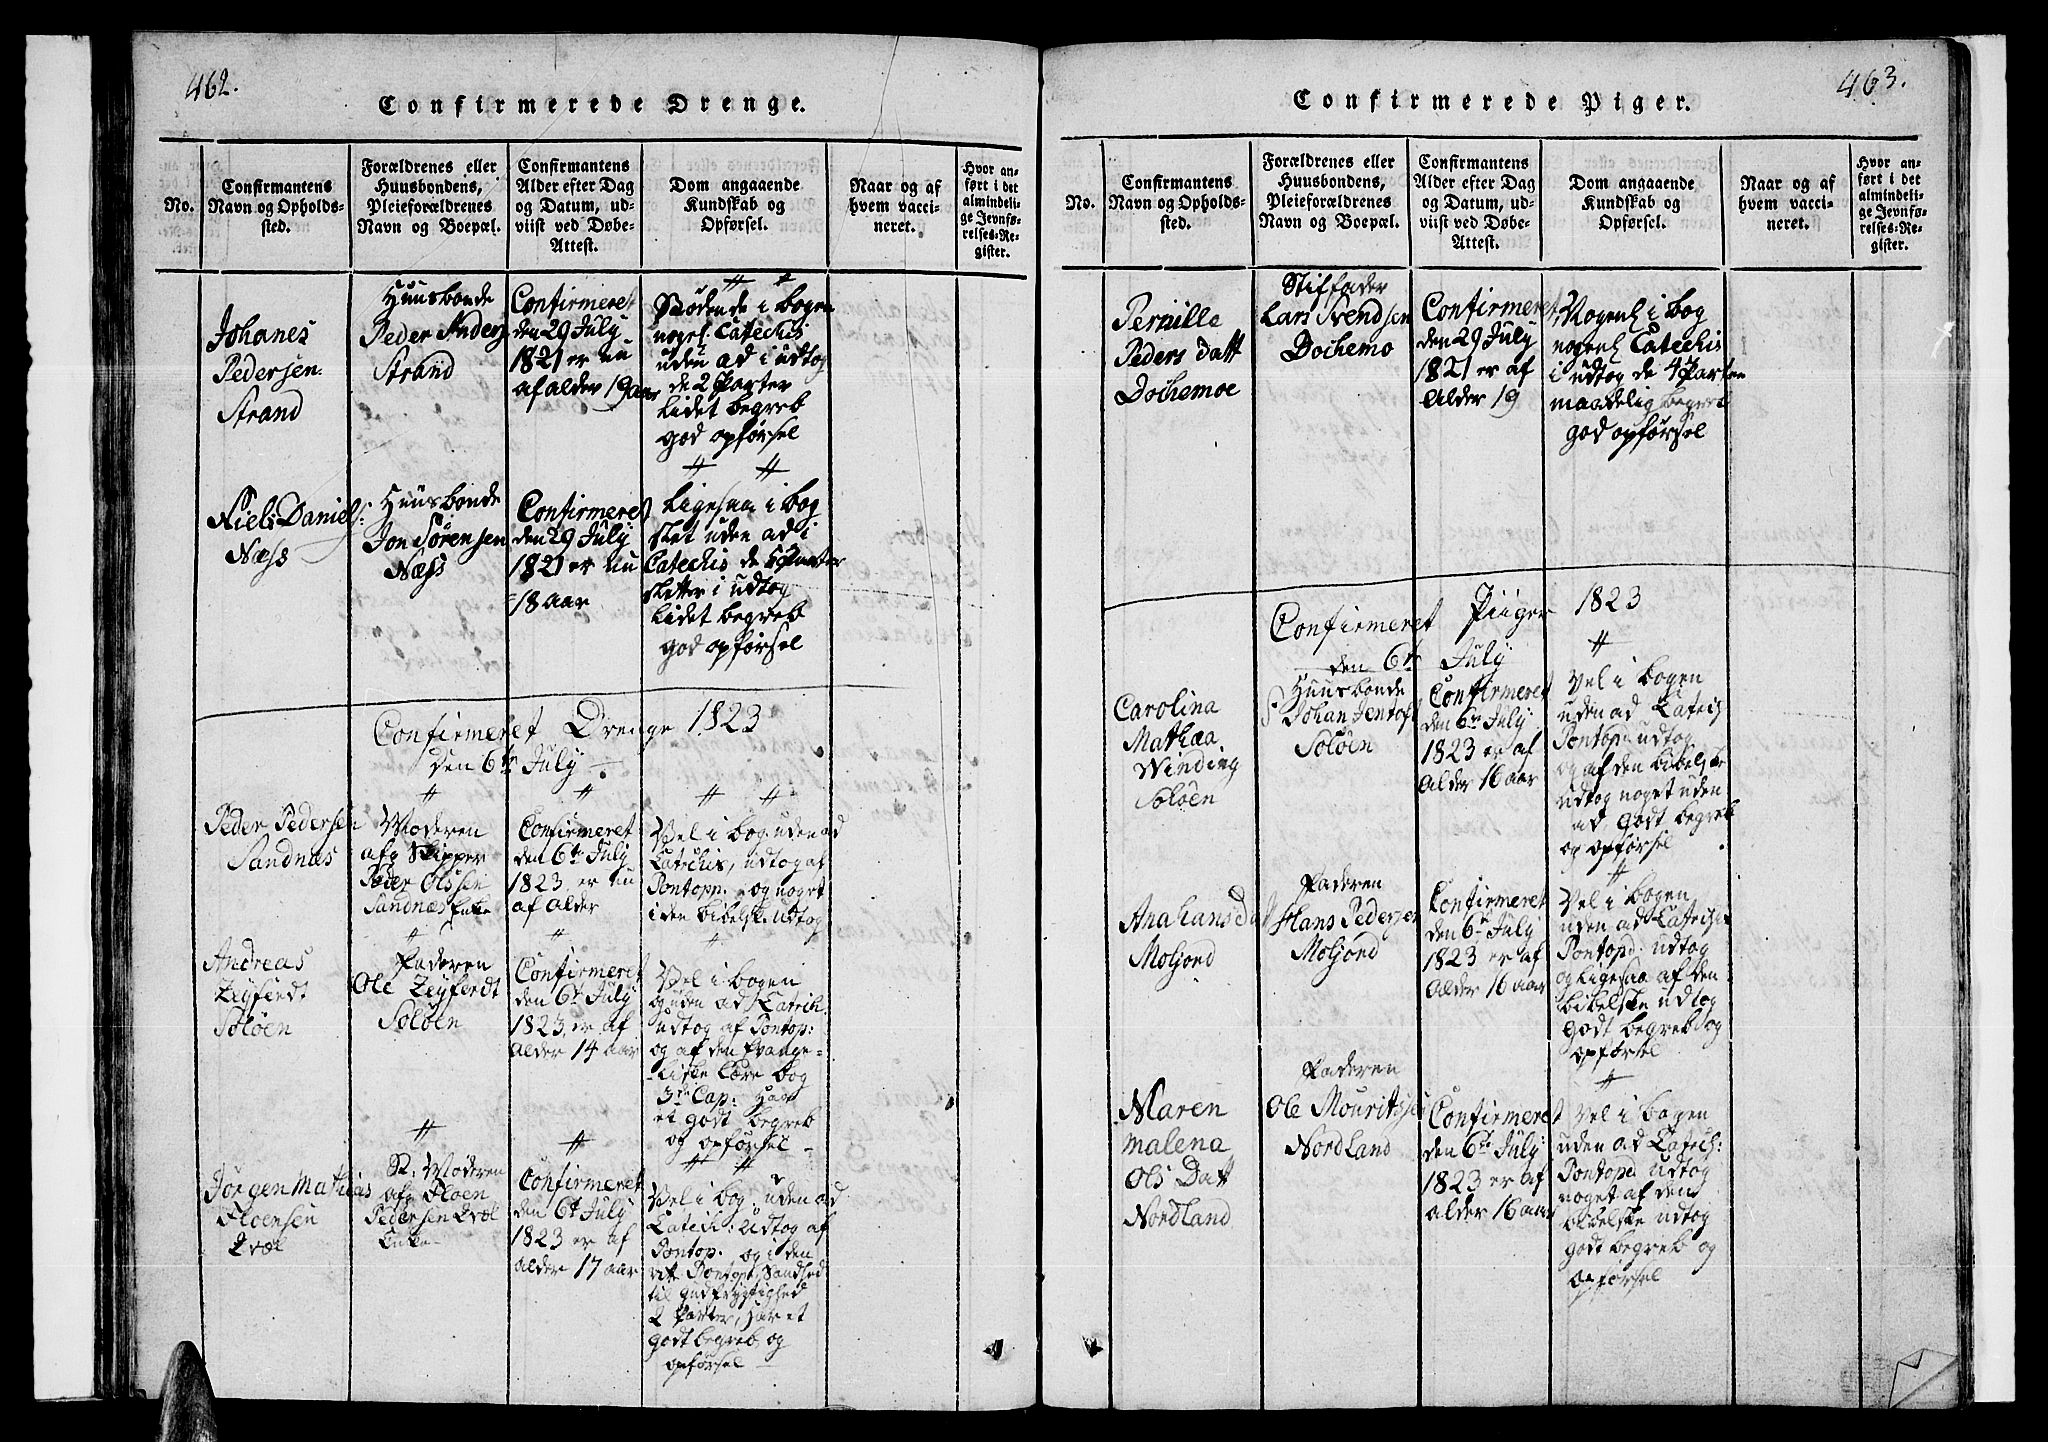 462.
Confirmerede Drenge.
No.
Confirmantens
Navn og Opholds-
sted.
Forældrenes eller
Huusbondens,
Pleieforældrenes
Navn og Boepæl.
Confirmantens
Alder efter Dag
og Datum, ud-
viist ved Døbe-
Attest.
Dom angaaende
Kundskab og
Opførsel.
Naar og af
hvem vacci-
neret.
Hvor an-
ført i det
almindeli-
ge Jevnfø-
relses-Re-
gister.
Johanes
Pedersen
Strand
Huusbonde
Peder Anders
Strand
Confirmeret
den 29 July
1821 er nu
af alder 19 aar
i bogen
nogel. Catechis
uden ad i udtog
de 2 Parter
lidet begreb
god opførsel
Niels Daniels:
Næss
Huusbonde
Jon Sørensen
Næss
Confirmeret
den 29 July
1821 er nu
18 aar
Ligesaa i bog
slet uden ad i
Catechis de 5 Parter
sletter i udtog
lidet begreb
god opførsel
Confirmeret Drenge 1823
den 6te July
Peder Pedersen
Sandnæs
Moderen
afg Skipper
Peder Olssen
Sandnæs Enke
Confirmeret
den 6te July
1823 er nu
af alder
Vel i bog uden ad
Catechis, udtog af
Pontopp: og noget
i den bibelske udtog
Andreas
Zeyferdt
Soløen
Faderen
Ole Zeyferdt
Soløen
Confirmeret
den 6te July
1823 er af
alder 14 aar
Vel i bogen
og uden ad Catech.
udtog af Pontop:
og af den Evange-
liske Lære bog
3de Cap: Har
et godt begreb
og opførsel
Jørgen Mathias
Floensen
Qvæl
Moderen
afg Floen
Pedersen Qvæl
Enke
Confirmeret
den 6te July
1823 er af
alder 17 aar
Vel i bog uden ad
Catech: Udtog af
Pontop. og i den
Pontopp, Sandhed
til gudfrygtighed
2 Parter, Har et
godt begreb og
opførsel
463.
Confirmerede Piger.
No.
Confirmantens
Navn og Opholds-
sted.
Forældrenes eller
Huusbondens,
Pleieforældrenes
Navn og Boepæl.
Confirmantens
Alder efter Dag
og Datum, ud-
viist ved Døbe-
Attest.
Dom angaaende
Kundskab og
Opførsel.
Naar og af
hvem vacci-
neret.
Hvor an-
ført i det
almindeli-
ge Jevnfø-
relses-Re-
gister.
Pernille
Peders Datt
Dokemoe
Stiffader
Lars Svendsen
Dokemo
Confirmeret
den 29 July
1821 er af
Alder 19
i bog
Catechis
i udtog de 4 Parter
maadelig begreb
god opførsel
Confirmeret Piiger 1823
den 6te July
Carolina
Mathea
Winding
Soløen
Huusbonde
Johan Jentoft
Soløen
Confirmeret
den 6te July
1823 er af
Alder 16 aar
Vel i bogen
uden ad Catech
Pontop: udtog
og af den bibelske
udtog noget uden
ad godt begreb
og opførsel
Ana Hans Dat
Moljord
Faderen
Hans Pedersen
Moljord
Confirmeret
den 6te July
1823 er af
Alder 16 aar
Vel i bogen
uden ad Catech
Pontopd: udtog
og ligesaa af den
bibelske udtog
godt begreb og
opførsel
Maren
Malena
Ols Datt
Nordland
Faderen
Ole Mouritssen
Nordland
Confirmeret
den 6te July
1823 er af
alder 16 aar
Vel i bogen
uden ad Catech:
Pontop: udtog
noget af den
bibelske udtog
godt begreb og
opførsel